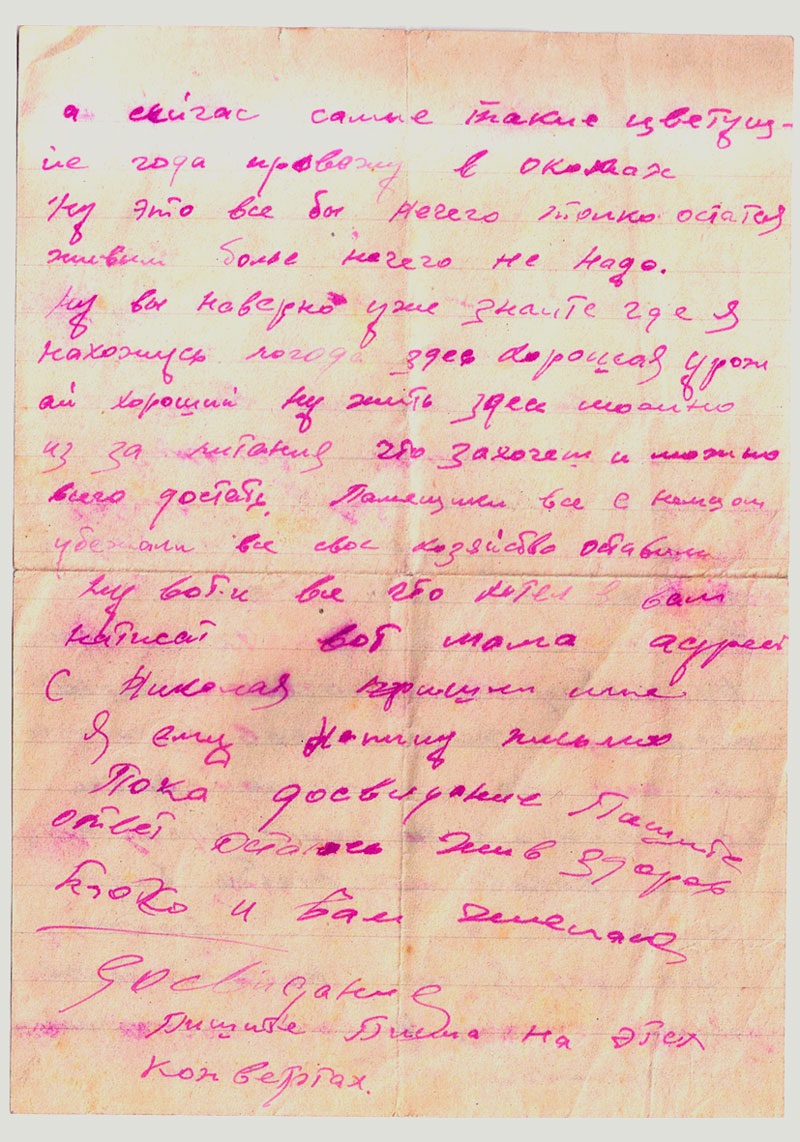 а сейчас самые такие цветущ-
ие года провожу в окопах
Ну это все бы нечего толко остатся
живым болье нечего не надо.
Ну вы наверно уже знаите где я
нахожусь погода здес хорошая урож
ай хороший Ну жить здес можно
из за питания что захочеш и можно
всего достать. Помещики все с немцом
убежали все свое хозяйство оставили
Ну вот и все что хотел вам
написат вот мама адрес
С Николая пришли мне
Я ему напишу письмо
Пока досвидание Пишите
ответ остаюсь жив здоров
и Вам желаю
Досвидания
Пишите Писма на этех
конвертах.